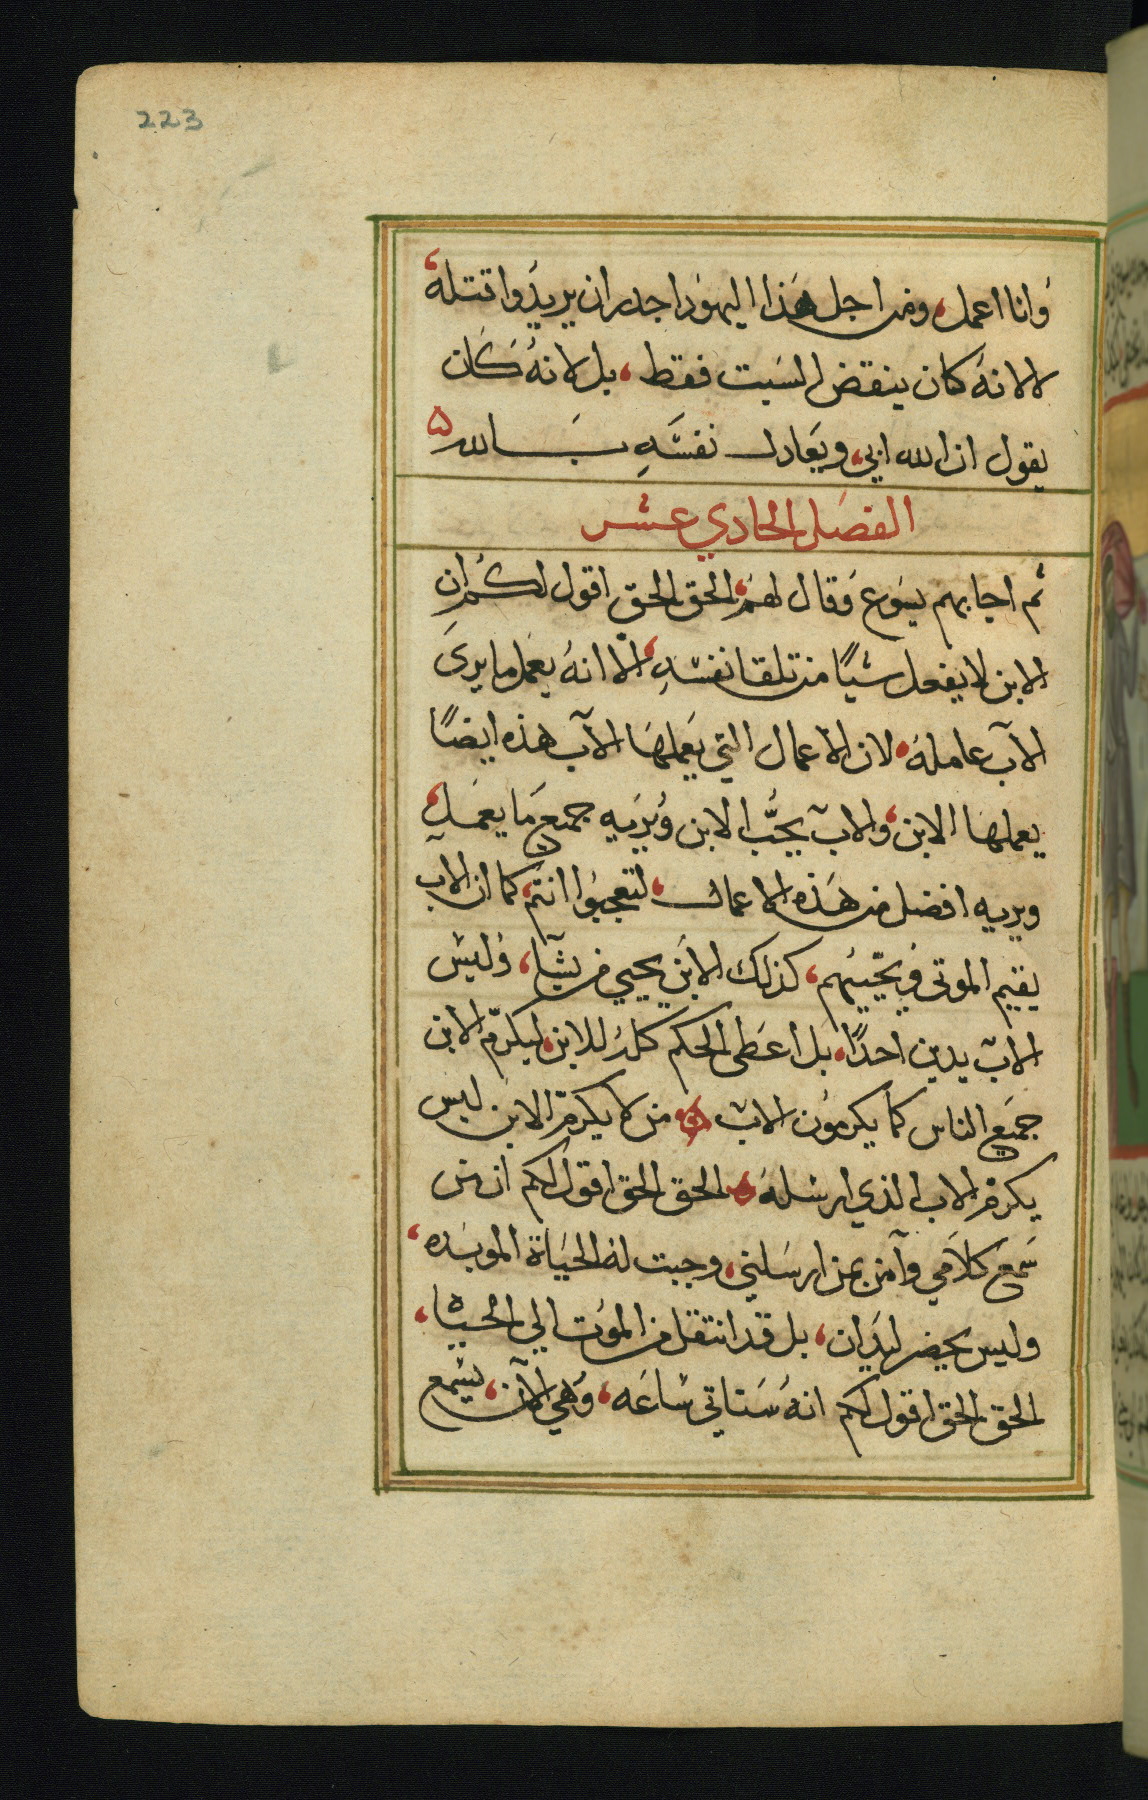 223
وانا اعمل، ومن اجل هذا اليهود اجدر ان يريدوا قتله،
لا لانه كان ينقض السبت فقط، بل لانه كان
يقول ان الله ابي، ويعادل نفسه بالله
الفصل الحادي عشر
ثم اجابهم يسوع وقال لهم، الحق الحق اقول لكم ان
الابن لا يفعل شيًا من تلقا نفسهِ، الّا انهُ يعمل ما يرى
الآب عامله، لان الاعمال التي يعملها الآب هذه ايضًا
يعملها الابن، والاب يحبّ الابن ويريه جميع ما يعمل،
ويريه افضل من هذه الاعمال، لتعجبوا انتم، كما ان الاب
يقيم الموتى ويحييهم، كذلك الابن يحيي من يشآ، وليس
الاب يدين احدًا، بل اعطى الحكم كله للابن، ليكرم الابن
جميع الناس كما يكرمون الاب من لا يكرم الابن ليس
يكرم الاب الذي ارسله الحق الحق اقول لكم ان من
سمع كلامي وآمن بمن ارسلني، وجبت له الحياة الموبده،
وليس يحضر ليدان، بل قد انتقل من الموت الي الحياه،
الحق الحق اقول لكم انه ستاتي ساعه، وهي الآن، يسمع